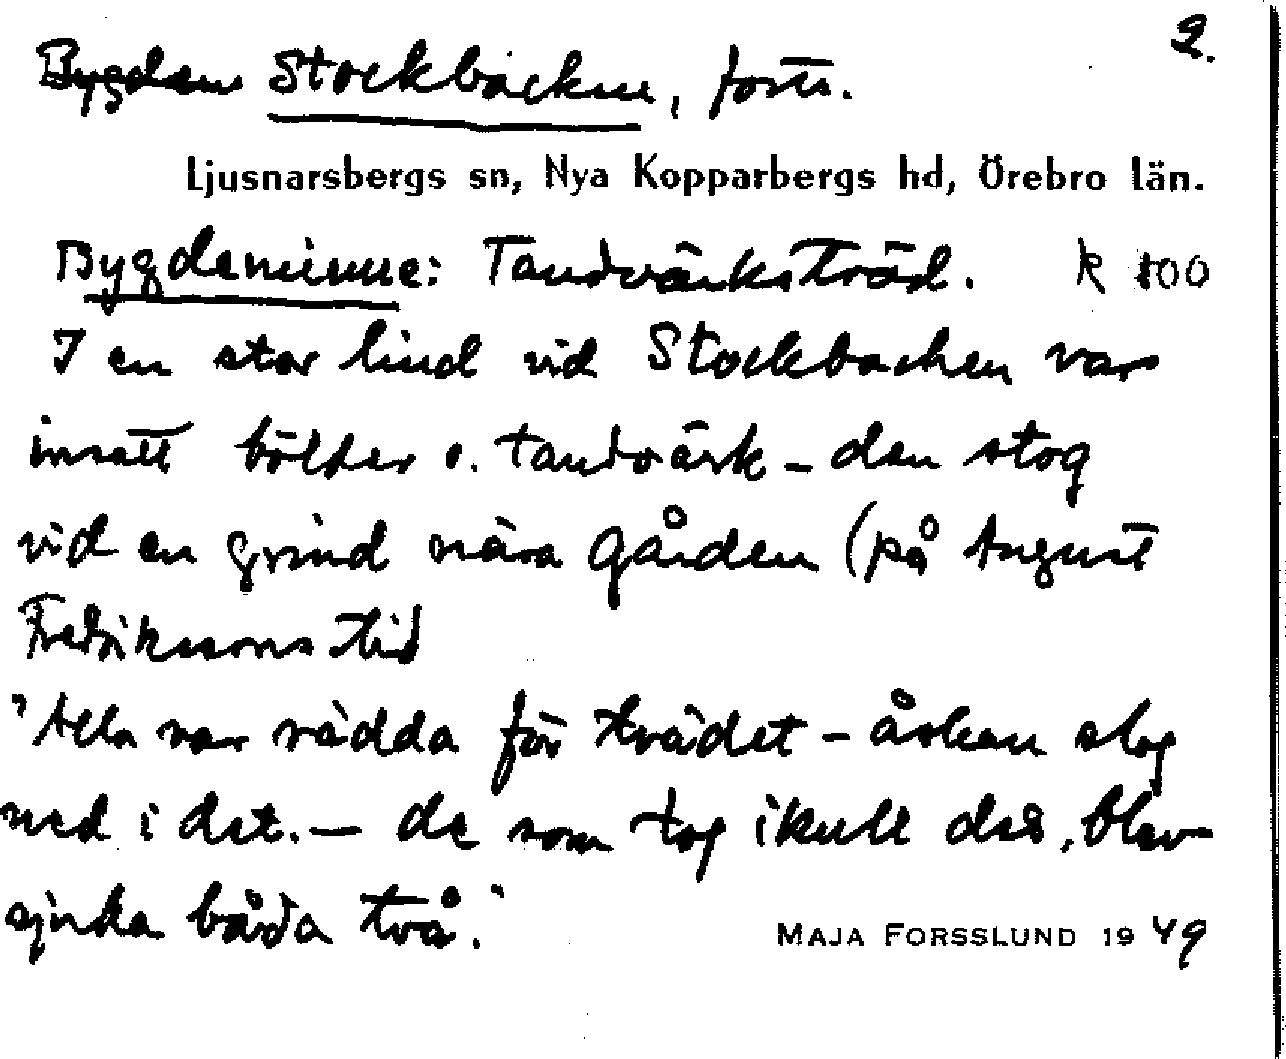 2.
Bygden Stockbacken, forts.
Ljusnarsbergs sn, Nya Kopparbergs hd, Örebro län.
Bygdeminne: Tandvärksträd. R 100
I en stor lind vid Stockbacken var
insatt bölder o. tandvärk - den stog
vid en grind nära gården (på August
Fredrikssons tid
"Alla var rädda för trädet - åskan slog
ned i det. - de som tog ikull det, blev
sjuka båda två."
MAJA FORSSLUND 1949